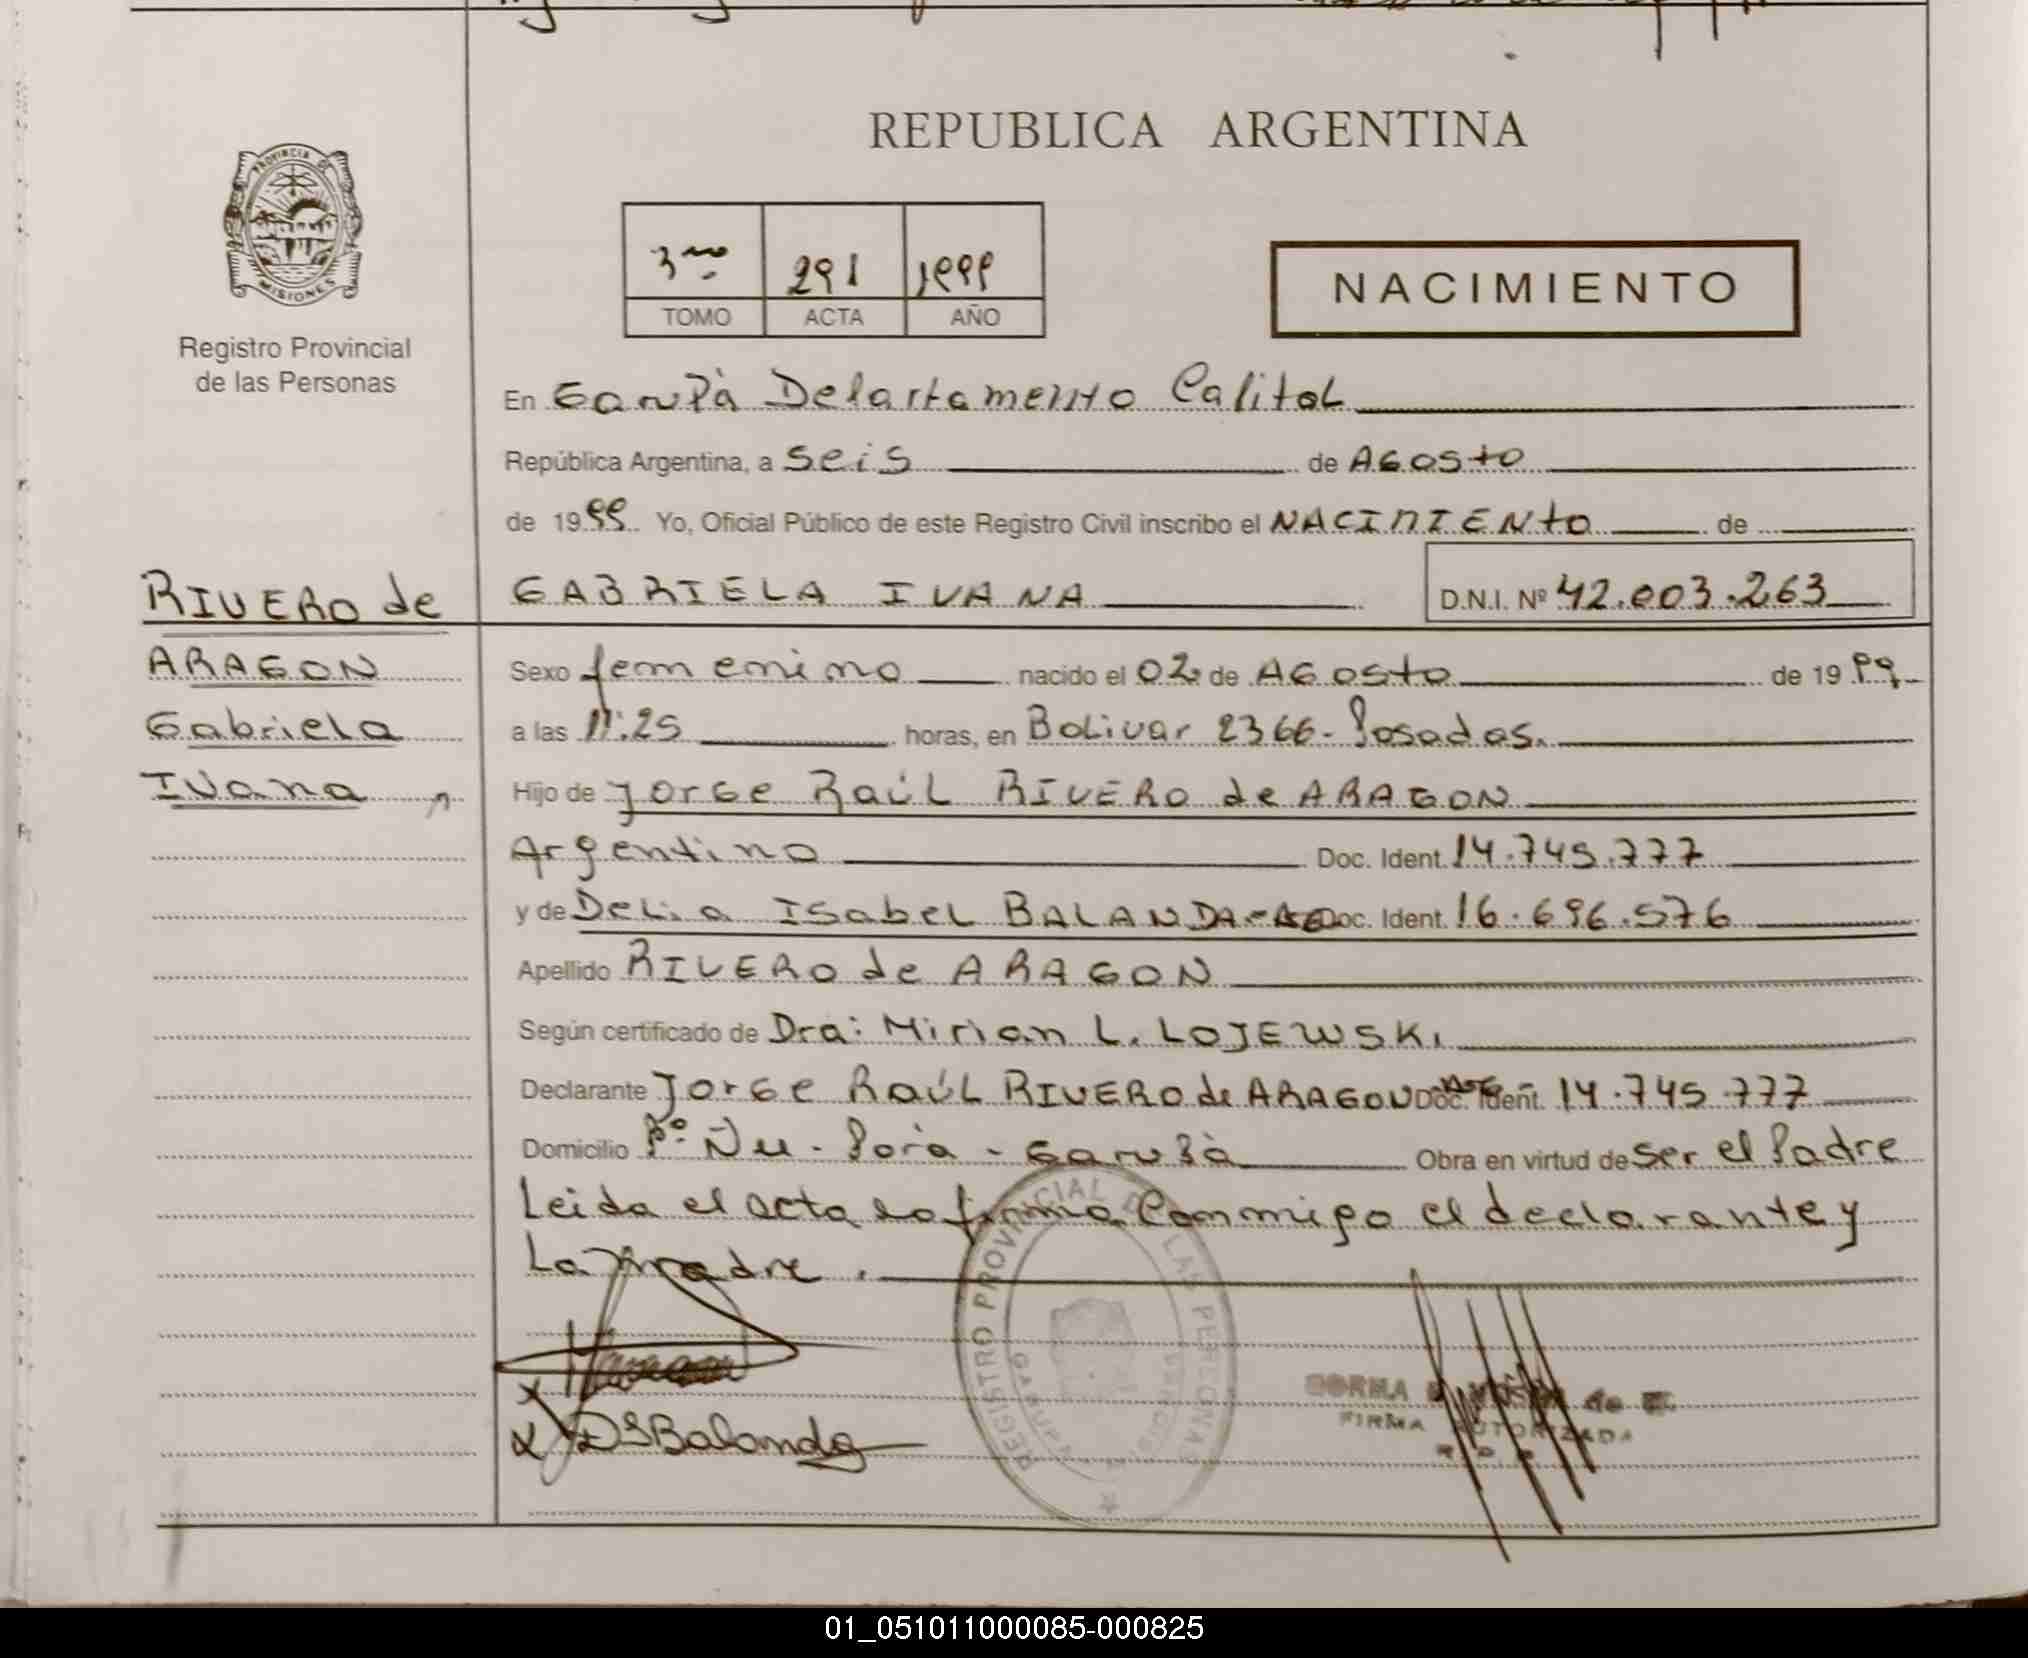 REPUBLICA ARGENTINA
PROVINCIA DE
MISIONES
Registro Provincial
de las Personas
3ro 291 1999
TOMO ACTA AÑO
NACIMIENTO
En Garupà Departamento Capital
República Argentina, a seis de Agosto
de 1999. Yo, Oficial Público de este Registro Civil inscribo el NACIMIENto de
GABRIELA IVANA D.N.I. Nº 42.003.263
RIVERO de
ARAGON
Gabriela
Ivana
Sexo femenino nacido el 02 de Agosto de 1999
a las 11:25 horas, en Bolivar 2366 - Posadas.
Hijo de Jorge Raúl RIVERO de ARAGON
Argentino Doc. Ident. 14.745.777
y de Delia Isabel BALANDA Doc. Ident. 16.696.576
Apellido RIVERO de ARAGON
Según certificado de Dra: Mirian L. LOJEWSKI
Declarante Jorge Raúl RIVERO de ARAGON Doc. Ident. 14.745.777
Domicilio Bº Ñu - Porà - Garupà Obra en virtud de ser el Padre
Leida el acta la firma Conmigo el declarante y
La Madre.
REGISTRO PROVINCIAL DE LAS PERSONAS
DSBalanda
FIRMA AUTORIZADA
01_051011000085-000825